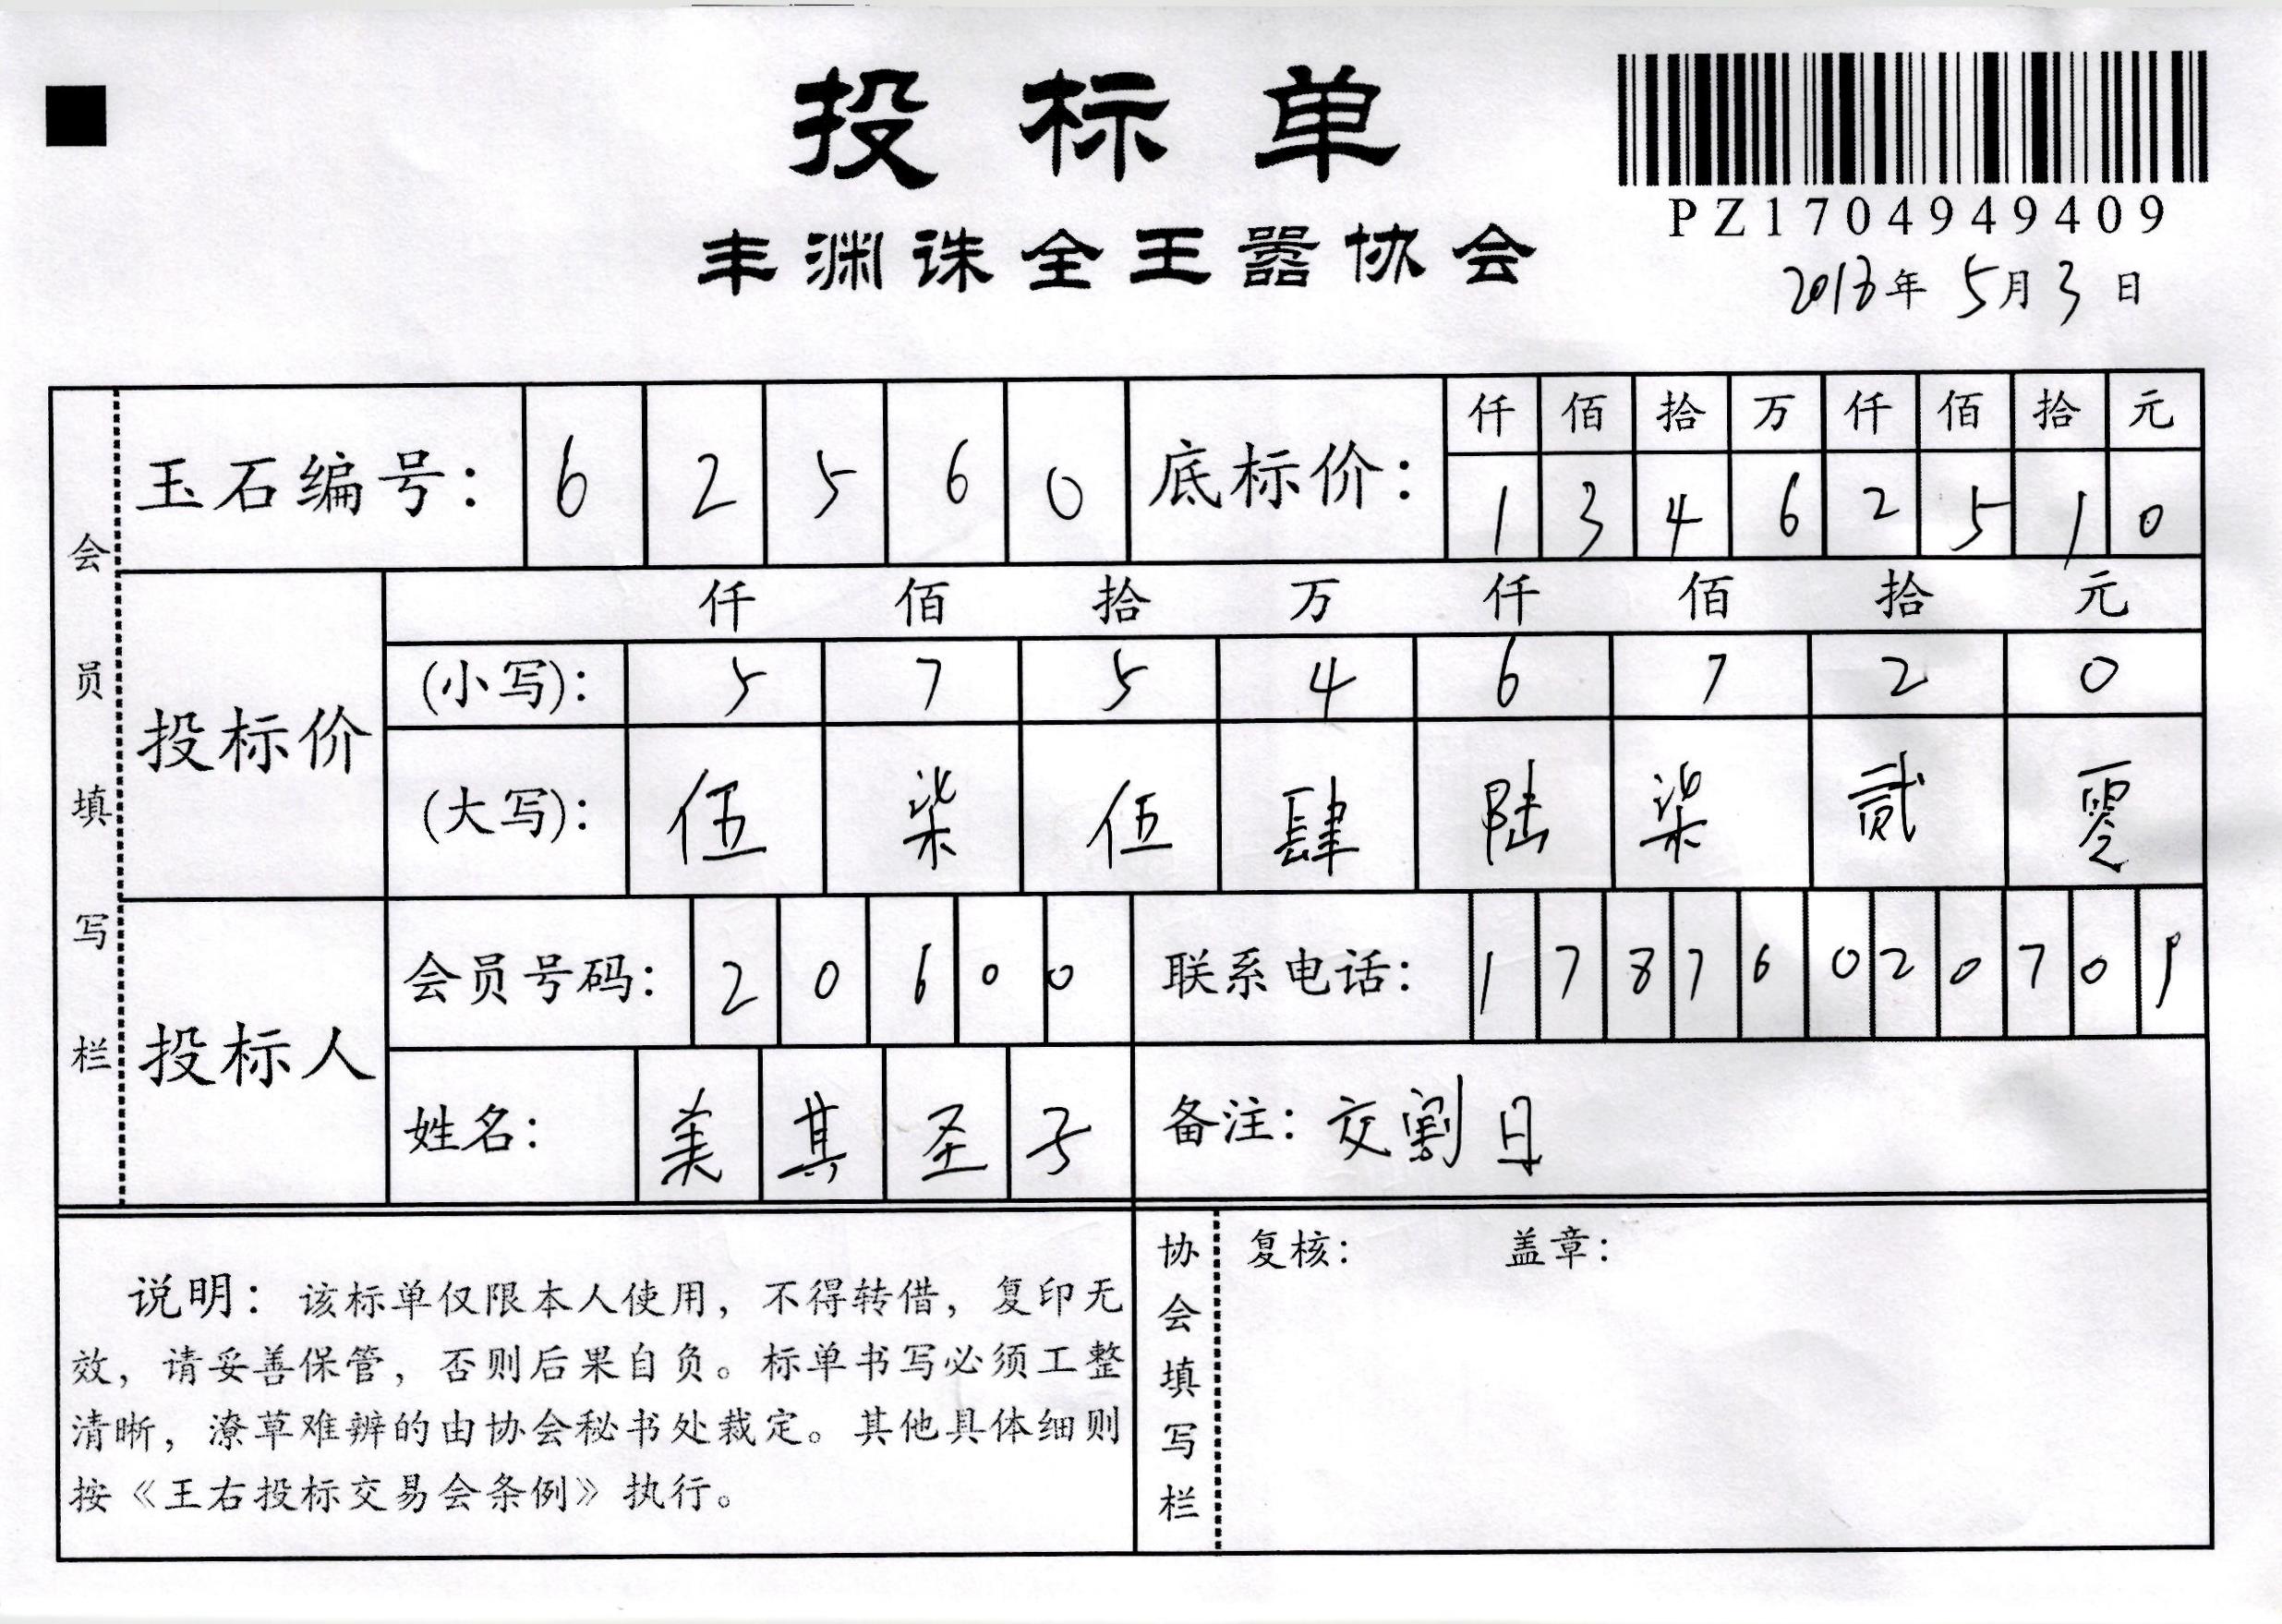 投标单
PZ1704949409
丰渊诛全王嚣协会
年 5月3日
会员填写栏
玉石编号： 6 2 5 6 0
底标价： 仟 佰 拾 万 仟 佰 拾 元
1 3 4 6 2 5 1 0
投标价
仟 佰 拾 万 仟 佰 拾 元
(小写)： 5 7 5 4 6 7 2 0
(大写)： 伍 柒 伍 肆 陆 柒 贰 零
投标人
会员号码： 2 0 6 0 0
联系电话： 1 7 8 7 6 0 2 0 7 0
姓名： 美 其 圣 子
备注：交割日
说明：该标单仅限本人使用，不得转借，复印无
效，请妥善保管，否则后果自负。标单书写必须工整
清晰，潦草难辨的由协会秘书处裁定。其他具体细则
按《王右投标交易会条例》执行。
协会填写栏
复核： 盖章：